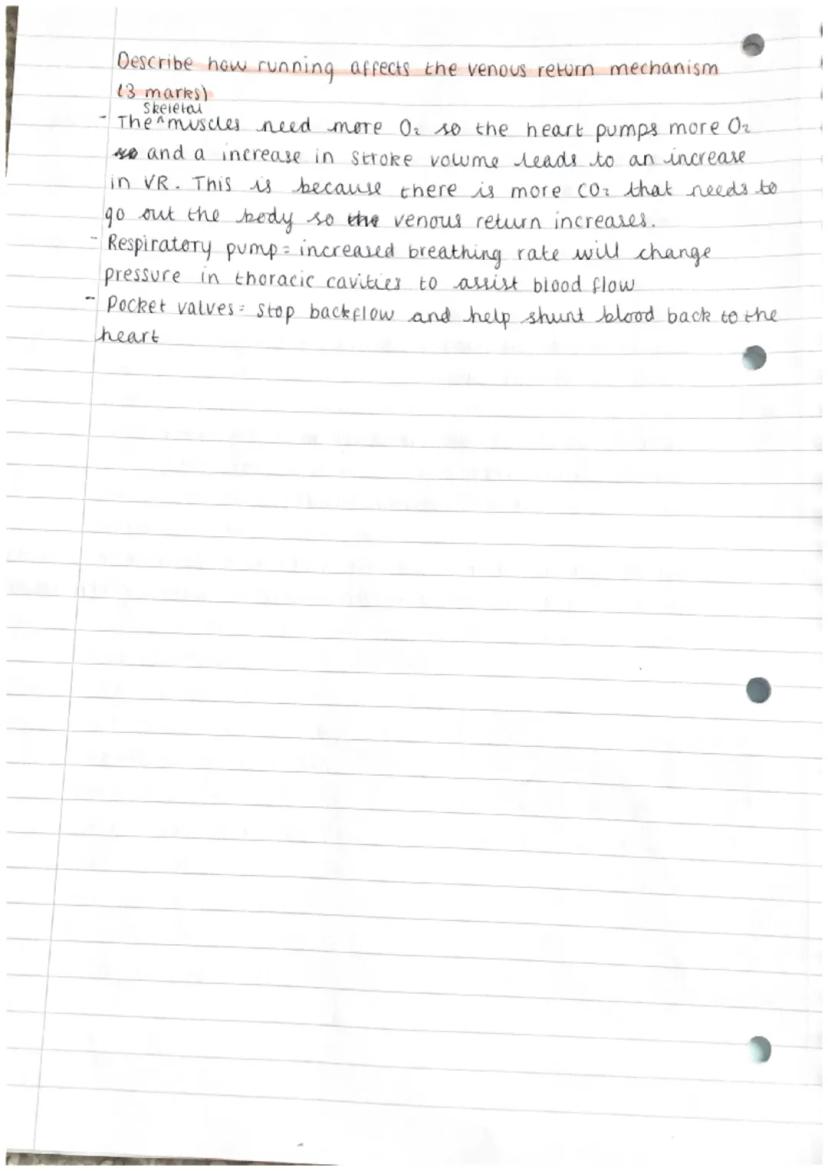 Describe how running affects the venous return mechanism
(3 marks)
- The ^skeletal muscles need more O₂ so the heart pumps more O₂
and a increase in stroke volume leads to an increase
in VR. This is because there is more CO₂ that needs to
go out the body so the venous return increases.
- Respiratory pump = increased breathing rate will change
pressure in thoracic cavities to assist blood flow
- Pocket valves = stop backflow and help shunt blood back to the
heart